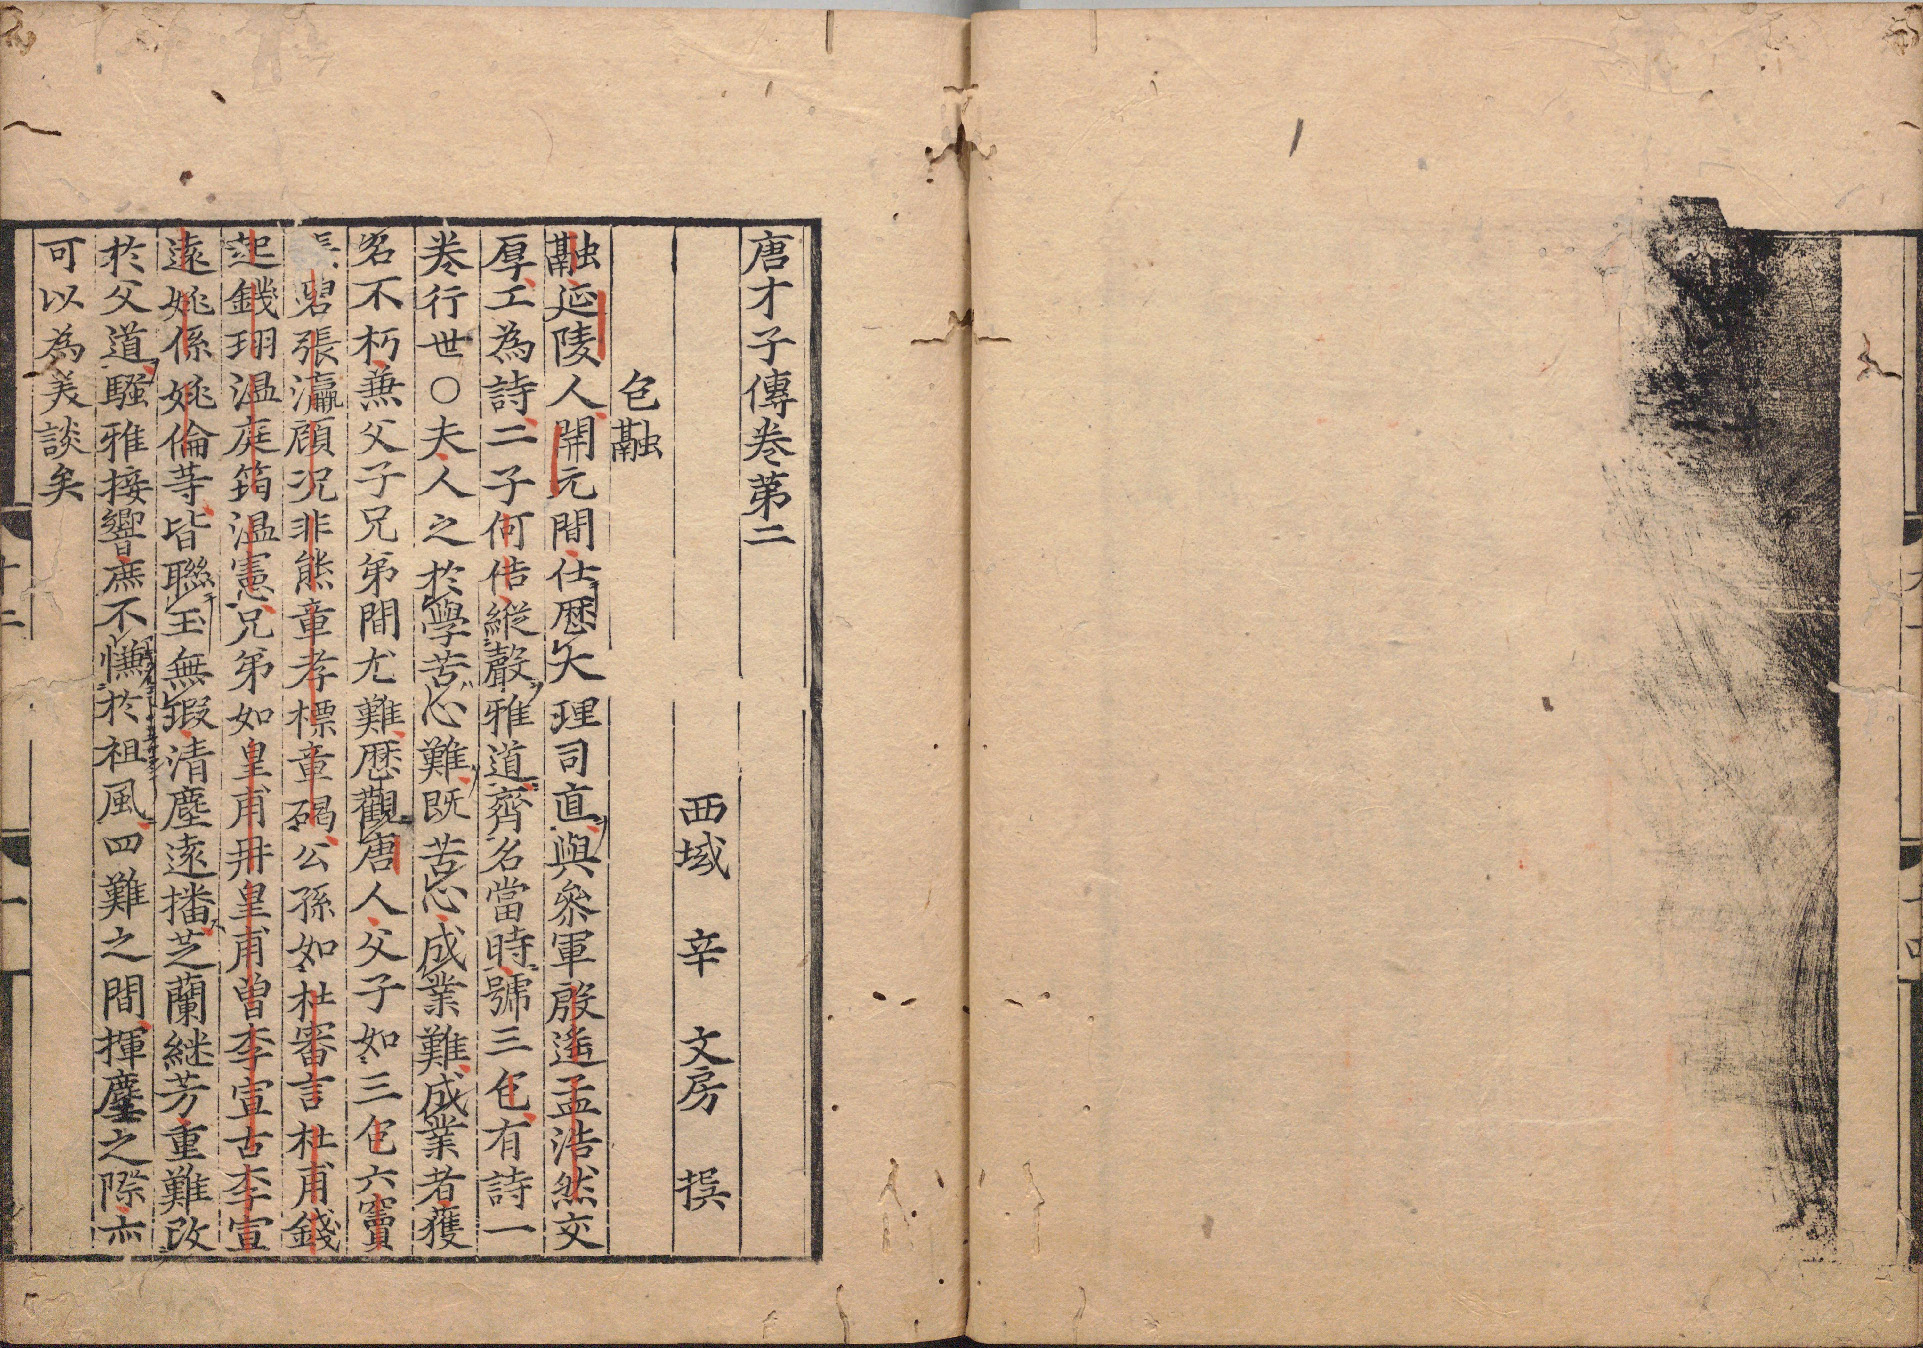 唐才子傳卷第二
西域 辛 文房 撰
包融
融延陵人開元間仕歷大理司直與參軍殷遙孟浩然交
厚工為詩二子何佶縱聲雅道齊名當時號三包有詩一
卷行世○夫人之於學苦心難既苦心成業難成業者獲
名不朽兼父子兄弟間尤難歷觀唐人父子如三包六竇
張碧張瀛顧況非熊章孝標章碣公孫如杜審言杜甫錢
起錢珝溫庭筠溫憲兄弟如皇甫冉皇甫曾李宣古李宣
遠姚係姚倫等皆聯玉無瑕清塵遠播芝蘭継芳重難改
於父道騷雅接響庶不憮於祖風四難之間揮麈之際亦
可以為美談矣